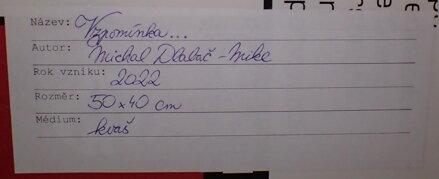 Název: Vzpomínka...
Autor: Michal Dlabač - Mike
Rok vzniku: 2022
Rozměr: 50 x 40 cm
Médium: kvaš